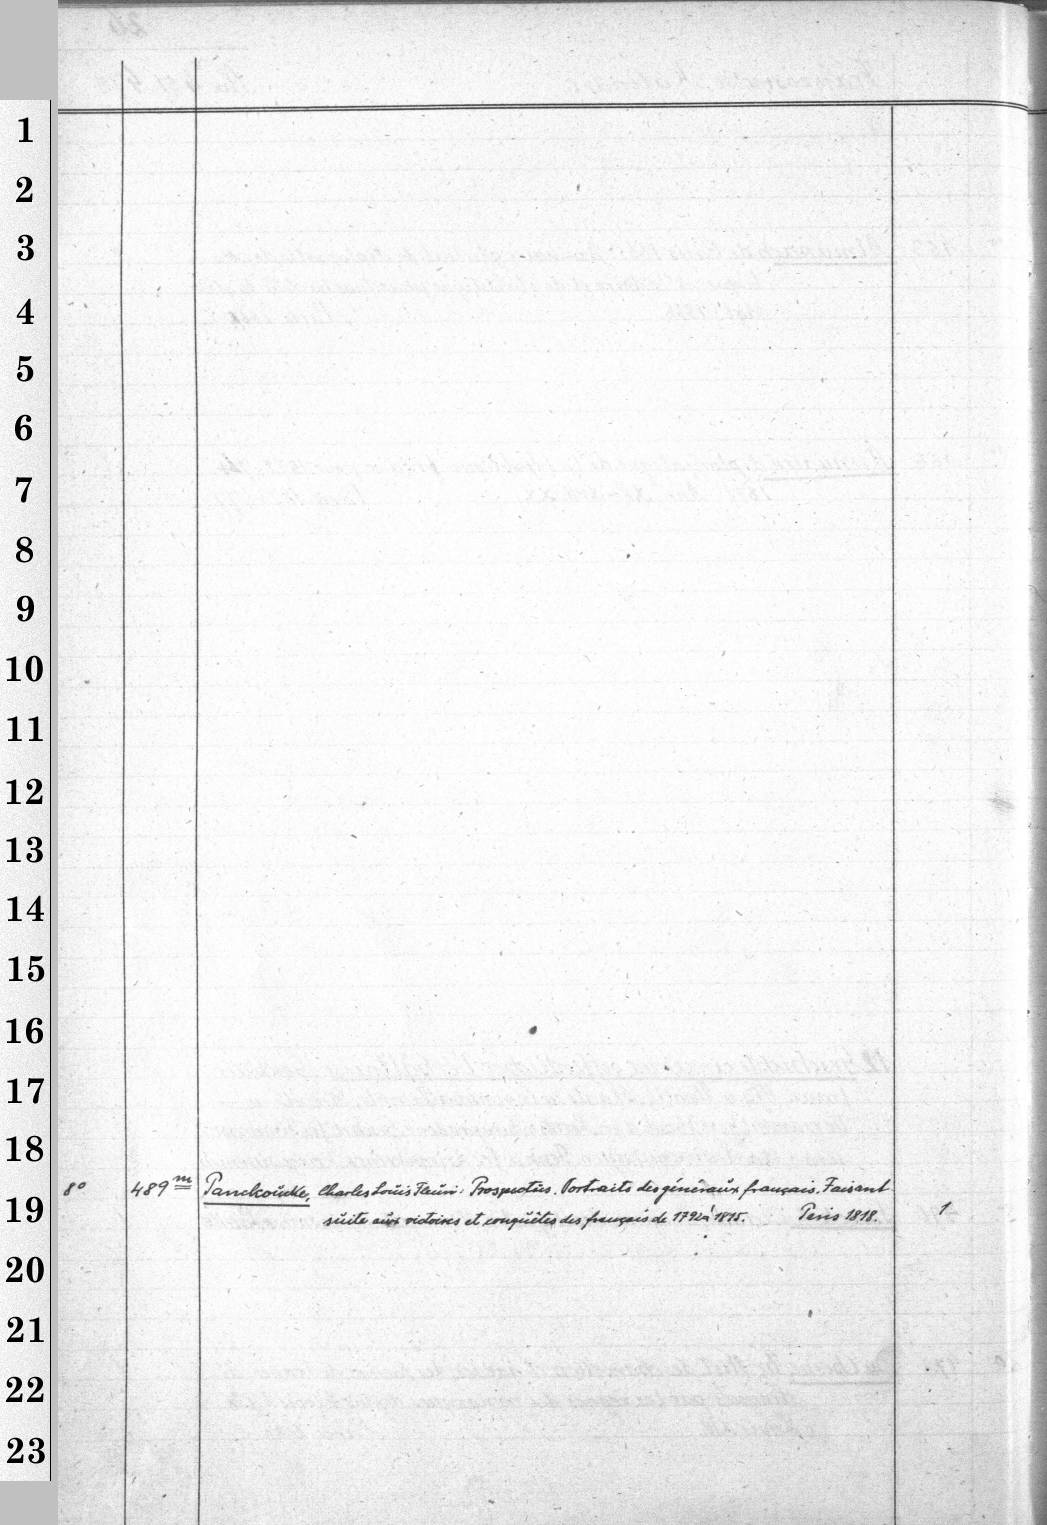 1
2
3
4
5
6
7
8
9
10
11
12
13
14
15
16
17
18
8° 489 m Panckoucke, Charles Louis Fleuri: Prospectus. Portraits des généraux français. Faisant
19 suite aux victoires et conquêtes des français de 1792 à 1815. Paris 1818. 1
20
21
22
23